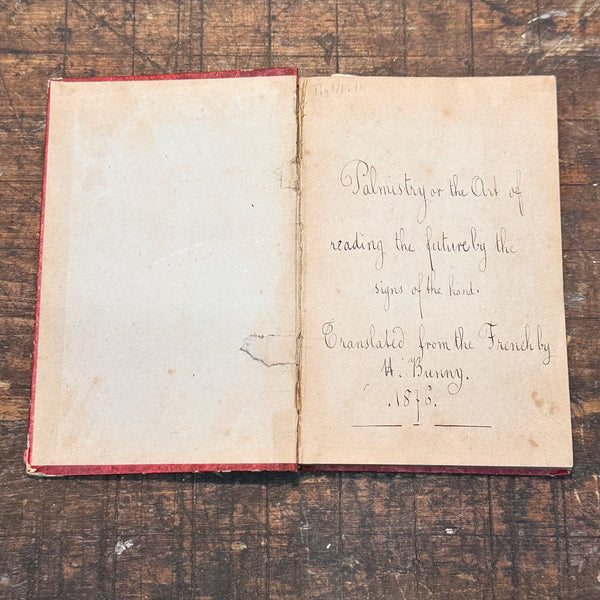 Palmistry or the Art of
reading the future by the
signs of the hand.
Translated from the French by
H. Bunny.
.1876.